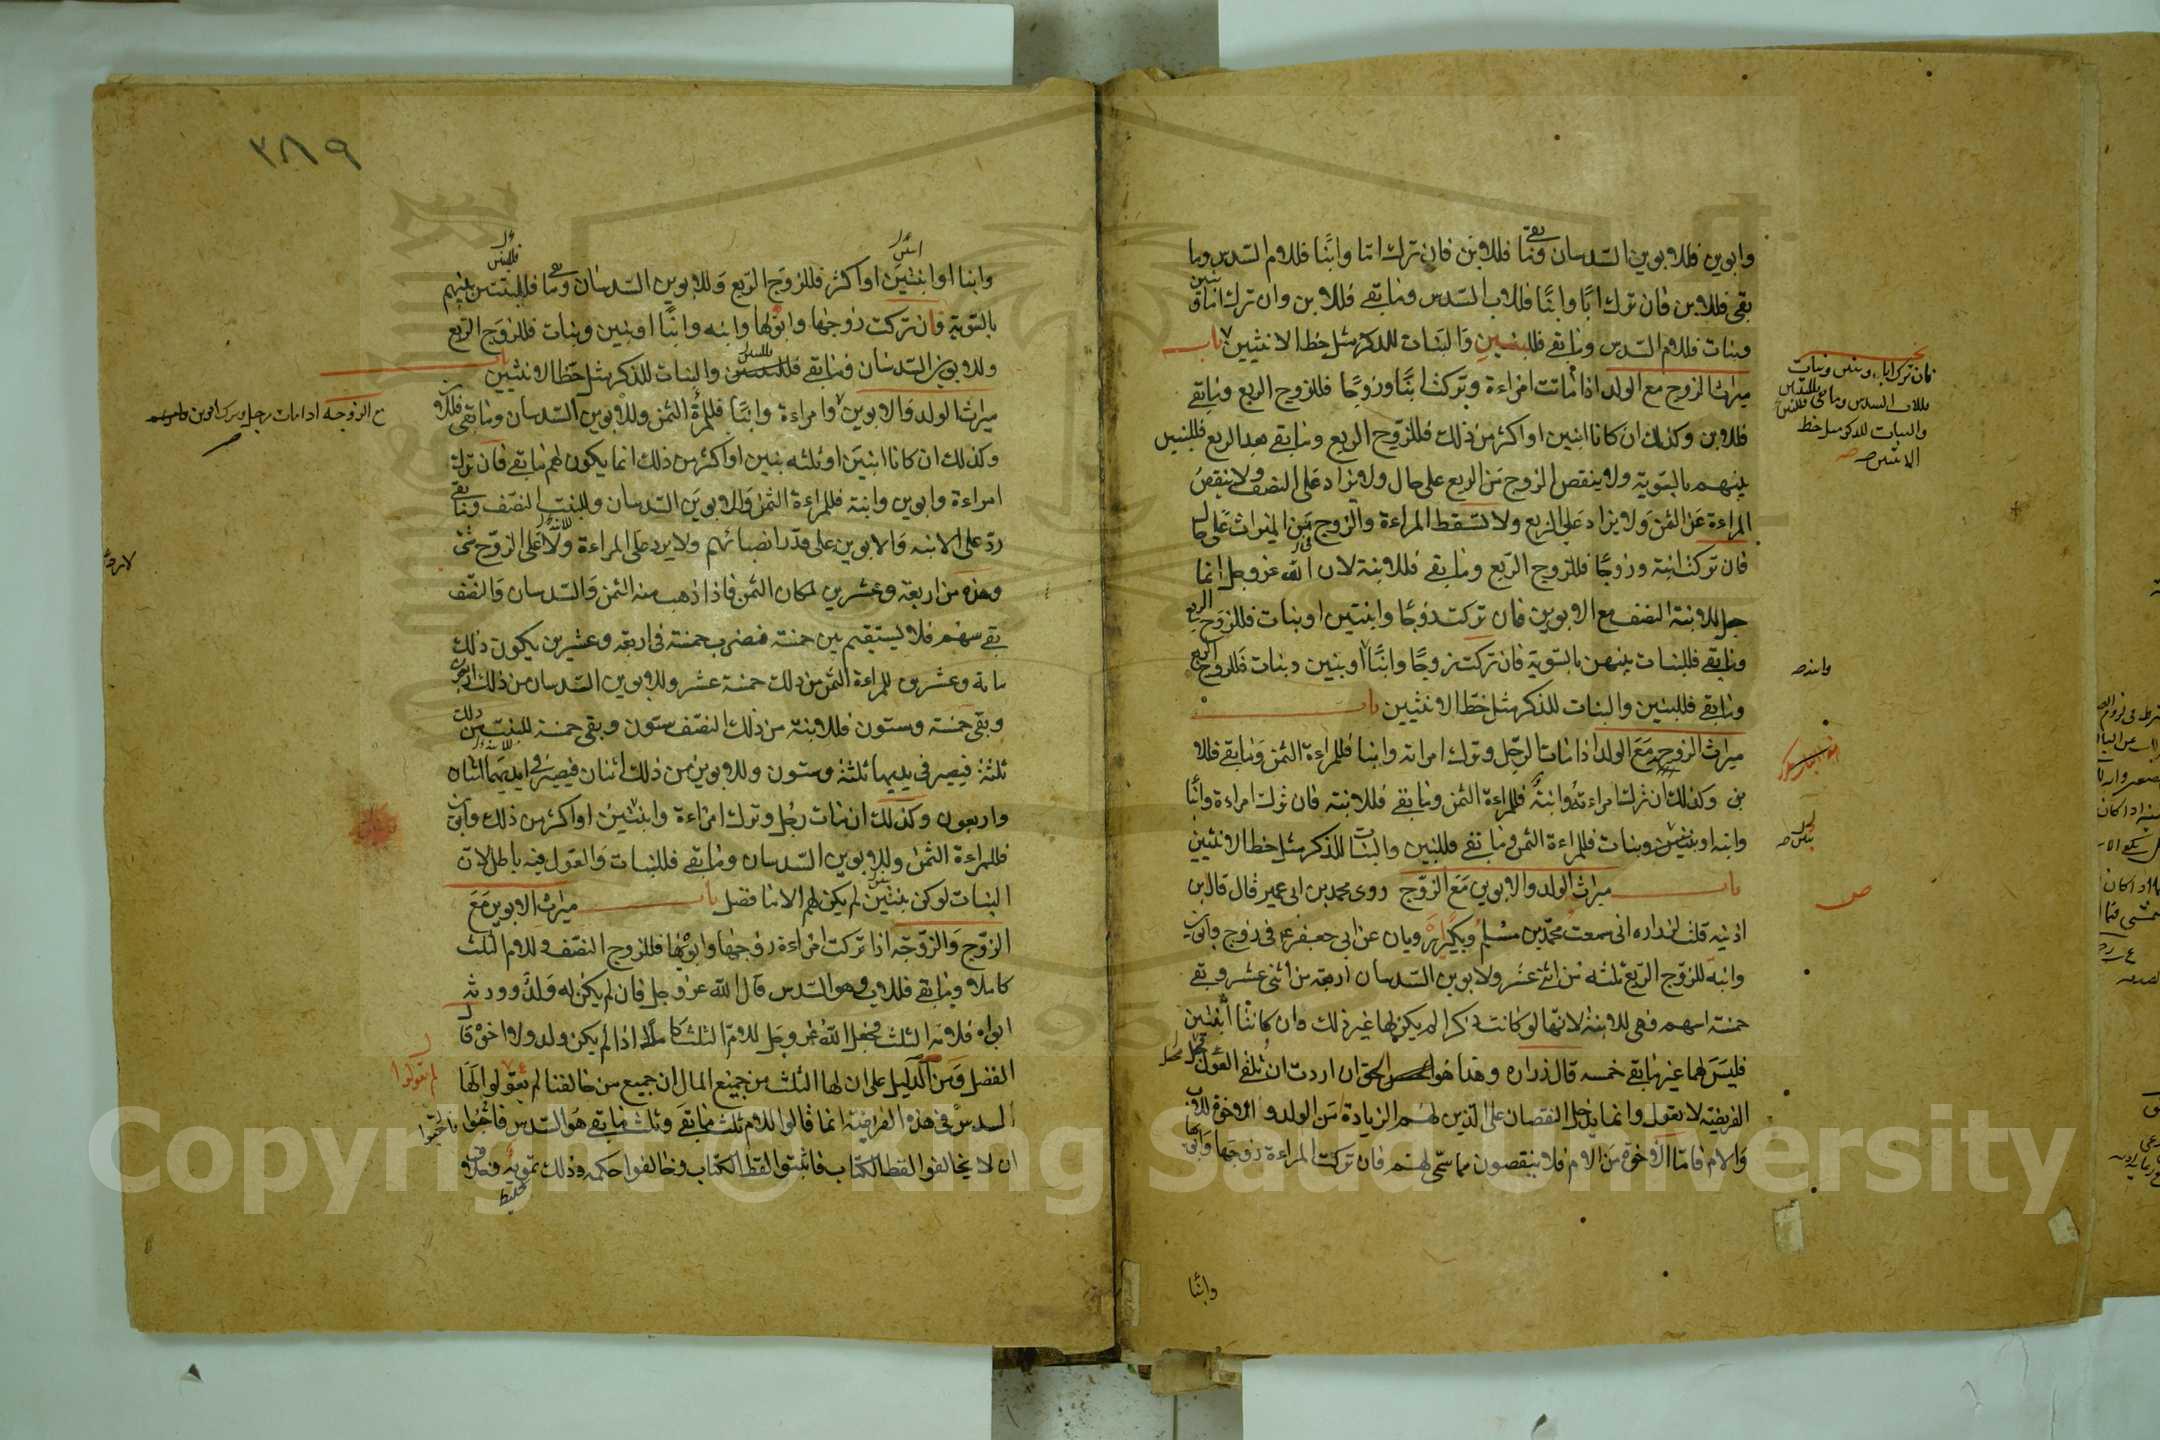 وابوين فللابوين السدسان وما بقى فللابن فان ترك اما وابنا فللام السدس وما
بقى فللابن فان ترك ابا وابنا فللاب السدس وما بقى فللابن وان ترك اما وبنين
وبنات فللام السدس وما بقى فللبنين والبنات للذكر مثل حظ الانثيين باب
ميراث الزوج مع الولد اذا ماتت امراءة وتركت ابنا وزوجا فللزوج الربع وما بقى
فللابن وكذلك ان كانا ابنين او اكثر من ذلك فللزوج الربع وما بقى بعد الربع فللبنين
بينهم بالسوية ولا ينقص الزوج من الربع على حال ولا يزاد على النصف ولا ينقص
المراءة عن الثمن ولا يزاد على الربع ولا تسقط المراءة والزوج من الميراث على حال
فان تركت ابنة وزوجا فللزوج الربع وما بقى فللابنة لان الله عز وجل انما
جعل للابنة النصف مع الابوين فان تركت زوجا وابنتين او بنات فللزوج الربع
وما بقى فللبنات بينهن بالسوية فان تركت زوجا وابنا او بنين وبنات فللزوج الربع
وما بقى فللبنين والبنات للذكر مثل حظ الانثيين باب
ميراث الزوجة مع الولد اذا مات الرجل وترك امراته وابنا فللمراءة الثمن وما بقى فللا
بن وكذلك ان ترك امراءته وابنة فللمراءة الثمن وما بقى فللابنة فان ترك امراءة وابنا
وابنة او بنين وبنات فللمراءة الثمن وما بقى فللبنين والبنات للذكر مثل حظ الانثيين
باب ميراث الولد والابوين مع الزوج روى محمد بن ابى عمير قال قال ابن
اذينة قلت لزراره انى سمعت محمد بن مسلم وبكيرا يرويان عن ابى جعفر ع فى زوج وابوين
وابنة للزوج الربع ثلثه من اثنى عشر وللابوين السدسان اربعة من اثنى عشر وبقى
خمسة اسهم فهى للابنة لانها لو كانت ذكرا لم يكن لها غير ذلك وان كانتا ابنتين
فليس لهما غير ما بقى خمسه قال زراره وهذا هو الحق ان اردت ان تلقى العول فتجعل
الفريضة لا تعول وانما يدخل النقصان على الذين لهم الزيادة من الولد والاخوة للاب
والام فاما الاخوة من الام فلا ينقصون مما سمى لهم فان تركت المراءة زوجها وابويها
وابنا
فان ترك ابا وبنين وبنات
فللاب السدس وما بقى فللبنين
والبنات للذكر مثل حظ
الانثيين صح
٣٨٩
وابنا او ابنتين او اكثر فللزوج الربع وللابوين السدسان وما بقى فللبنتين بينهم
بالسوية فان تركت زوجها وابويها وابنه وابنا او بنين وبنات فللزوج الربع
وللابوين السدسان وما بقى فللبنين والبنات للذكر مثل حظ الانثيين باب
ميراث الولد والابوين مع الزوجه اذا مات رجل وترك ابوين وامراءة وابنا فللمرأة الثمن وللابوين السدسان وما بقى فللابن
وكذلك ان كانا ابنين او ثلثه بنين او اكثر من ذلك انما يكون لهم ما بقى فان ترك
امراءة وابوين وابنة فللمراءة الثمن وللابوين السدسان وللبنت النصف وما بقى
رد على الابنه والابوين على قدر انصبائهم ولا يرد على المراءة ولا على الزوج شئ
وهذه من اربعة وعشرين لمكان الثمن فاذا ذهب منه الثمن والسدسان والنصف
بقى سهم فلا يستقيم بين خمسة فضرب خمسة فى اربعة وعشرين يكون ذلك
مايه وعشرين للمراءة الثمن من ذلك خمسة عشر وللابوين السدسان من ذلك اربعون
وبقى خمسة وستون فللابنة من ذلك النصف ستون وبقى خمسة للبنت من ذلك
ثلثة فيصير فى يديها ثلثة وستون وللابوين من ذلك اثنان فيصير فى ايديهما اثنان
واربعون وكذلك ان مات رجل وترك امراءة وابنتين او اكثر من ذلك وابوين
فللمراءة الثمن وللابوين السدسان وما بقى فللبنات والعول فيه باطل لان
البنات لو كن بنين لم يكن لهم الا ما فضل باب ميراث الابوين مع
الزوج والزوجة اذا تركت امراءة زوجها وابويها فللزوج النصف وللام الثلث
كاملا وما بقى فللاب وهو السدس قال الله عز وجل فان لم يكن له ولد وورثه
ابواه فلامه الثلث فجعل الله عز وجل للام الثلث كاملا اذا لم يكن ولد ولا اخوة قال
الفضل ومن الدليل على ان لها الثلث من جميع المال ان جميع من خالفنا لم يقولوا لها
السدس فى هذه الفريضة انما قالوا للام ثلث ما بقى وثلث ما بقى هو السدس فاحبوا
ان لا يخالفوا لفظ الكتاب فاثبتوا لفظ الكتاب وخالفوا حكمه وذلك تمويه وخلاف